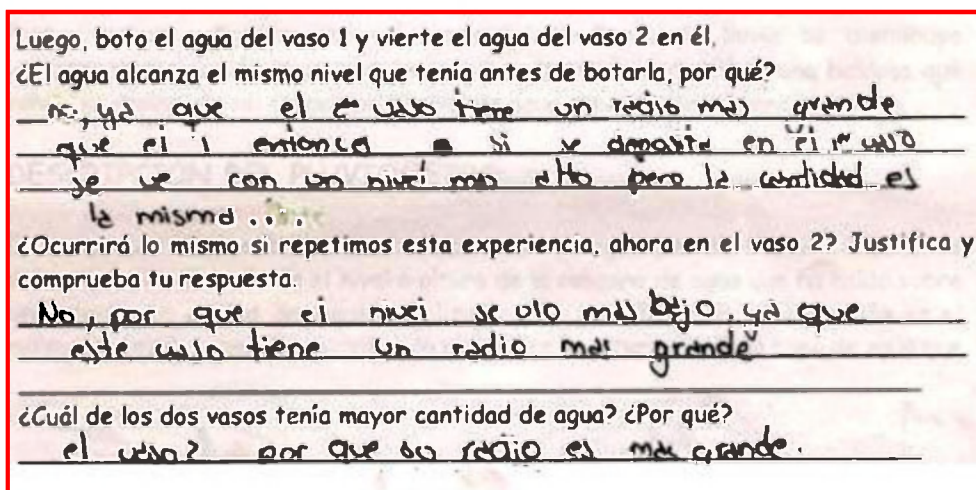 Luego, boto el agua del vaso 1 y vierte el agua del vaso 2 en él,
¿El agua alcanza el mismo nivel que tenía antes de botarla, por qué?
no, ya que el vaso tiene un radio mas grande
que el 1 entonces si se deposita en el 1er vaso
se ve con un nivel mas alto pero la cantidad es
la misma ....
¿Ocurrirá lo mismo si repetimos esta experiencia, ahora en el vaso 2? Justifica y
comprueba tu respuesta.
No, por que el nivel se vio mas bajo. ya que
este vaso tiene un radio mas grande
¿Cuál de los dos vasos tenía mayor cantidad de agua? ¿Por qué?
el vaso 2 por que su radio es mas grande.